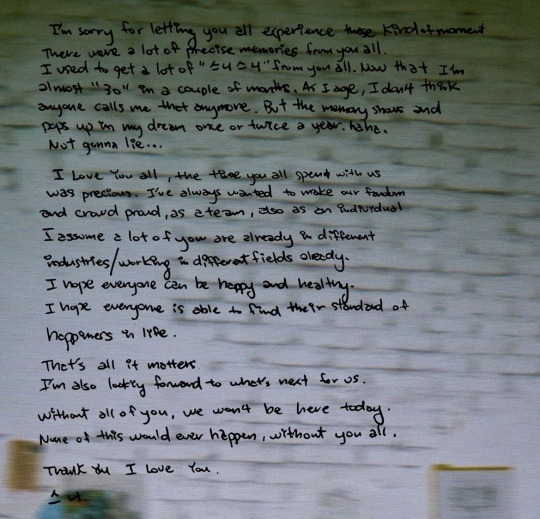 I'm sorry for letting you all experience those kind of moment
There were a lot of precise memories from you all.
I used to get a lot of "스너스너" from you all. Now that I'm
almost "30" in a couple of months. As I age, I don't think
anyone calls me that anymore. But the memory shows and
pops up in my dream once or twice a year. haha.
Not gonna lie...
I Love You all, the time you all spend with us
was precious. I've always wanted to make our fandom
and crowd proud, as a team, also as an individual
I assume a lot of you are already in different
industries/working in different fields already.
I hope everyone can be happy and healthy.
I hope everyone is able to find their standard of
happiness in life.
That's all it matters
I'm also looking forward to what's next for us.
Without all of you, we won't be here today.
None of this would ever happen, without you all.
Thank You I Love You.
스너